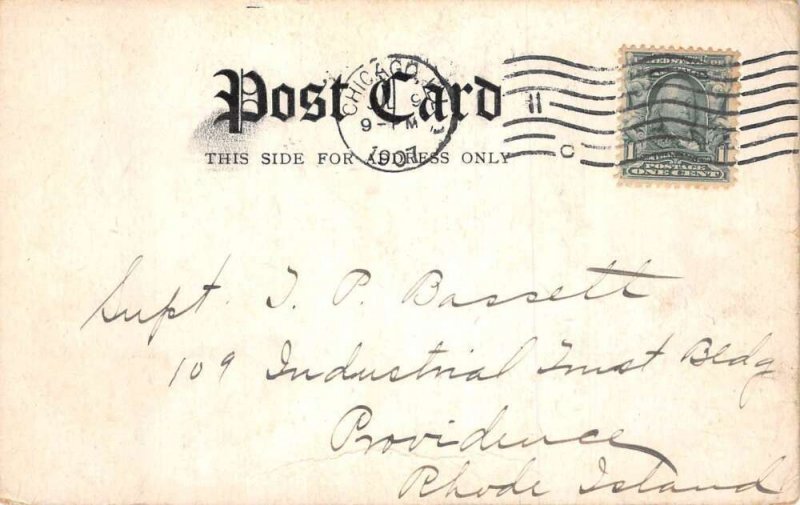 Post Card
THIS SIDE FOR ADDRESS ONLY
CHICAGO, ILL
9-PM
1907
11
C
POSTAGE
ONE CENT
Supt. T. P. Bassett
109 Industrial Trust Bldg
Providence
Rhode Island